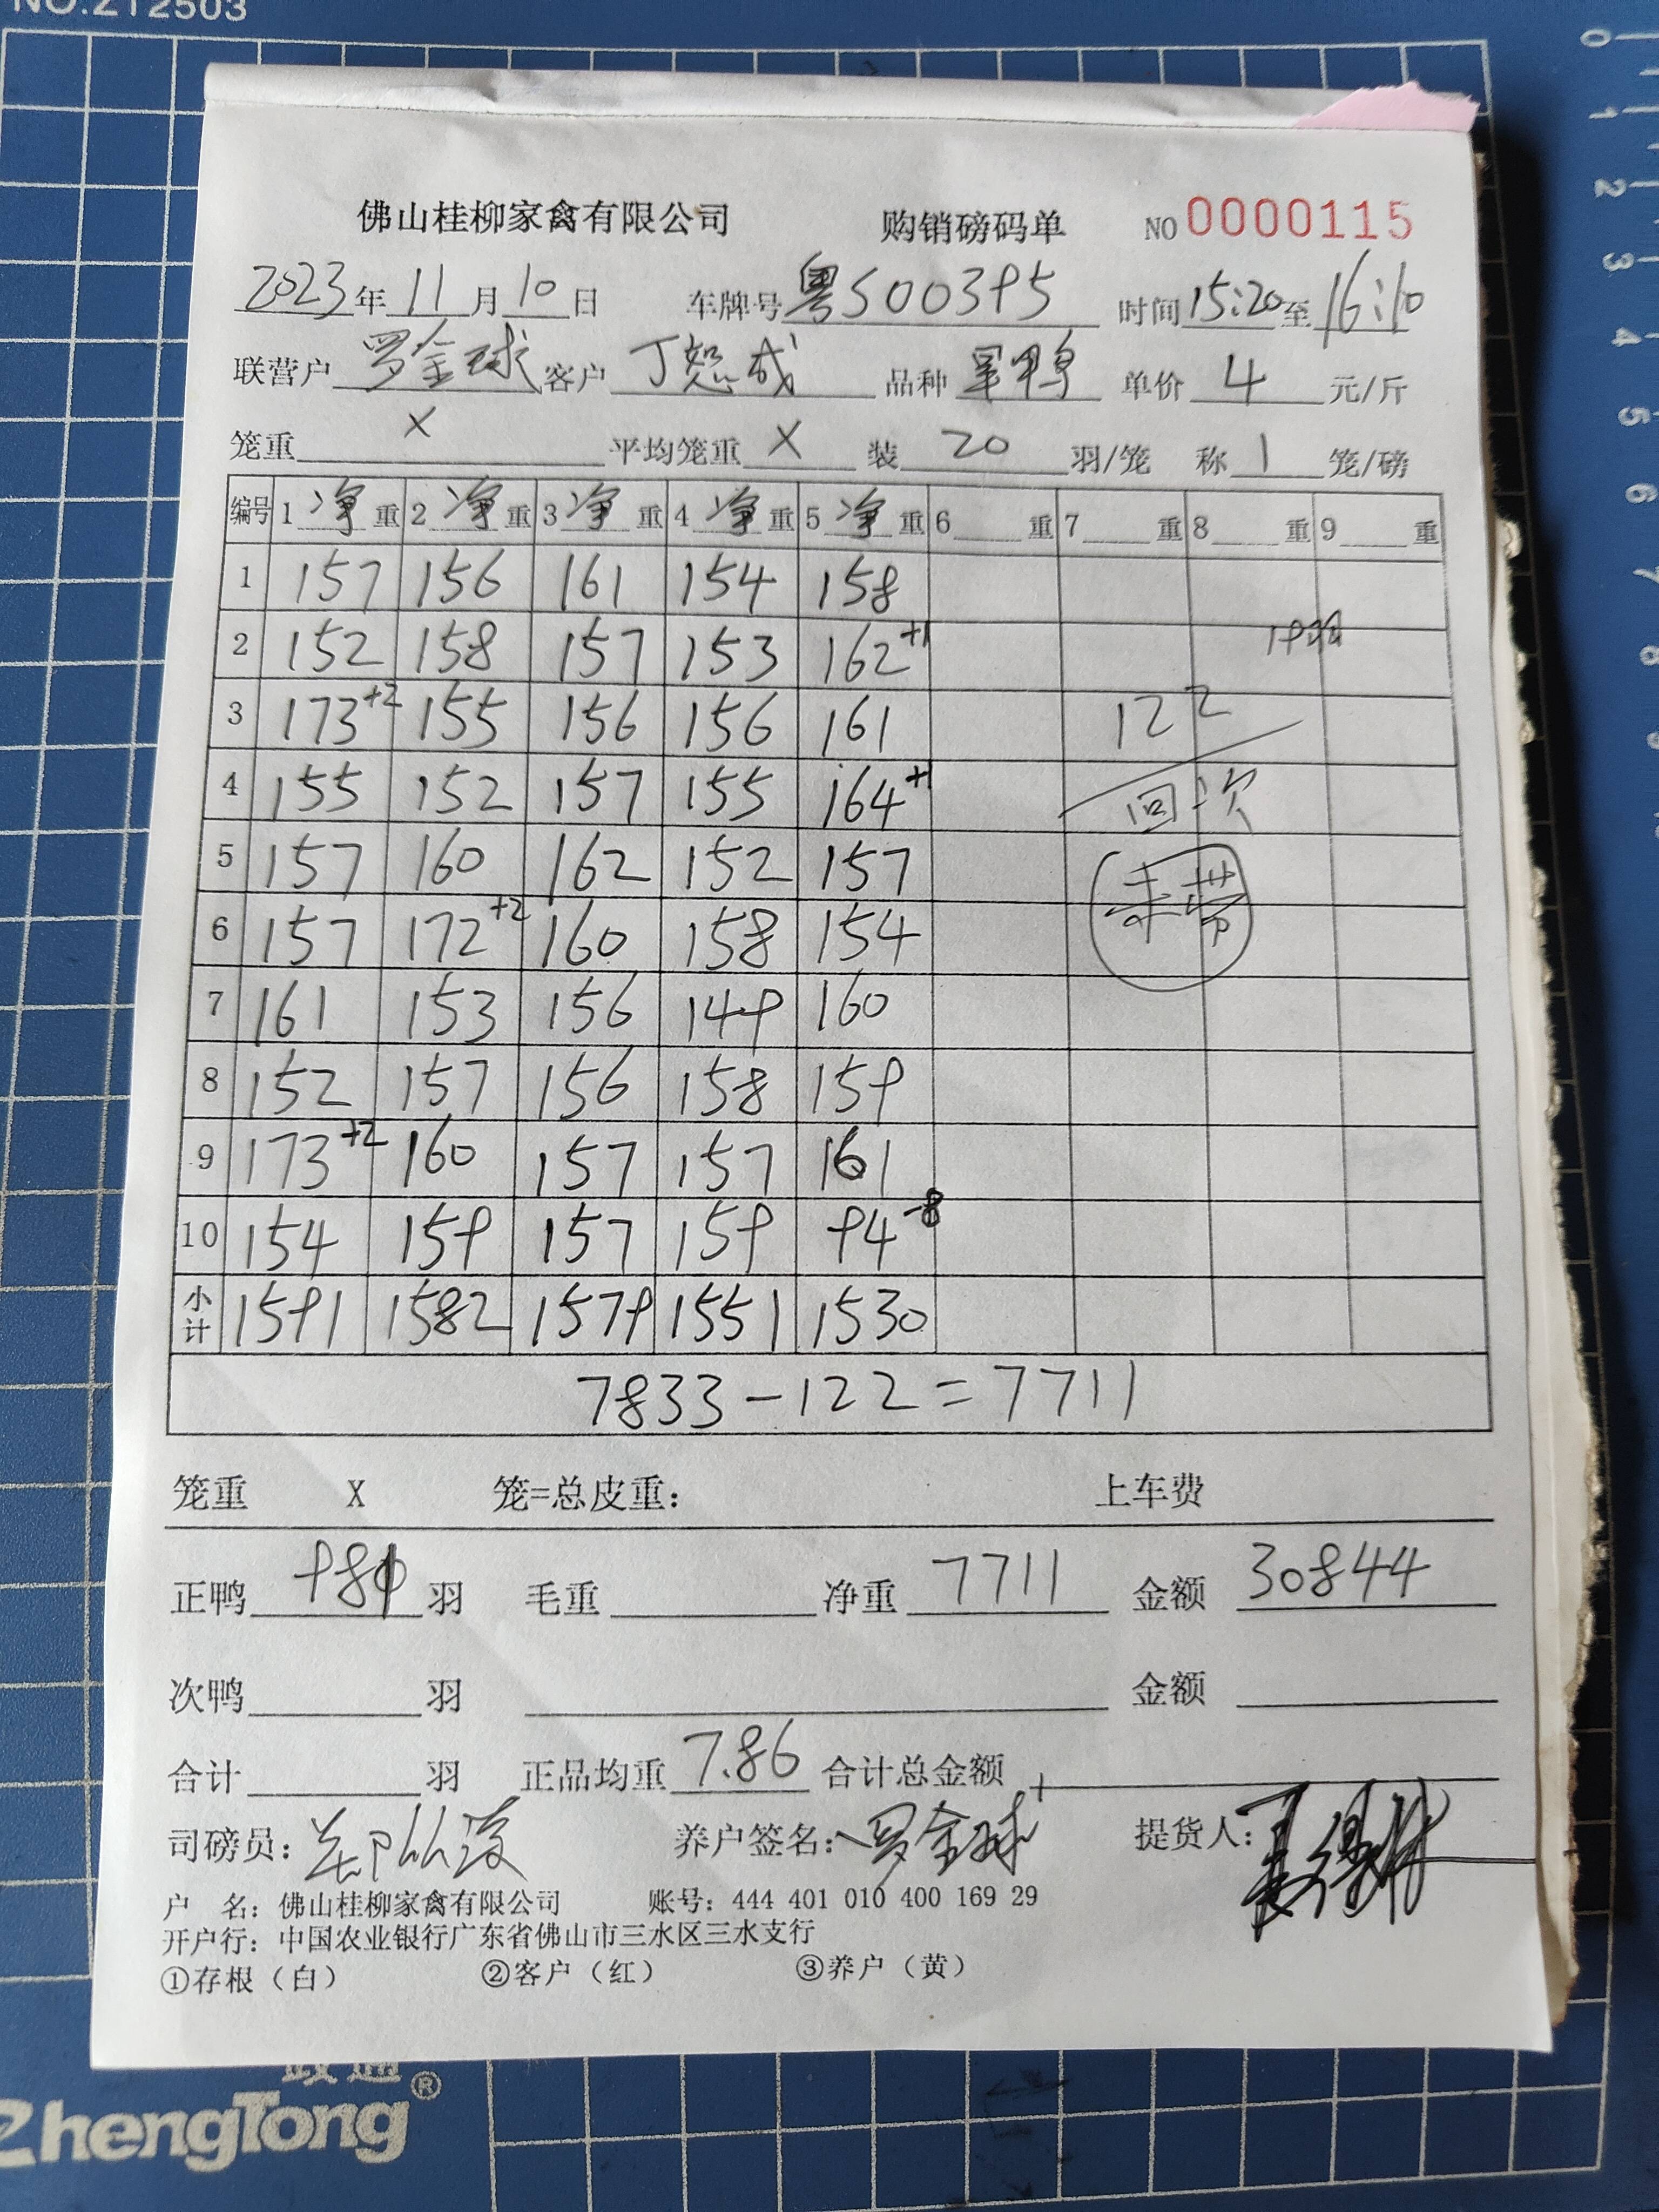 NO.ZT2503
佛山桂柳家禽有限公司 购销磅码单 NO 0000115
2023年 11月 10日 车牌号 粤S00395 时间 15:20 至 16:10
联营户 罗金球 客户 丁恕成 品种 军鸭 单价 4 元/斤
笼重 X 平均笼重 X 装 20 羽/笼 称 1 笼/磅
编号 1 净 重 2 净 重 3 净 重 4 净 重 5 净 重 6 重 7 重 8 重 9 重
1 157 156 161 154 158
2 152 158 157 153 162+1 19羽
3 173+2 155 156 156 161 122
4 155 152 157 155 164+1 回次
5 157 160 162 152 157 未带
6 157 172+2 160 158 154
7 161 153 156 149 160
8 152 157 156 158 159
9 173+2 160 157 157 161
10 154 159 157 159 94-8
小计 1591 1582 1579 1551 1530
7833-122=7711
笼重 X 笼=总皮重： 上车费
正鸭 981 羽 毛重 净重 7711 金额 30844
次鸭 羽 金额
合计 羽 正品均重 7.86 合计总金额
司磅员： 养户签名： 罗金球 提货人：
户 名：佛山桂柳家禽有限公司 账号：444 401 010 400 169 29
开户行：中国农业银行广东省佛山市三水区三水支行
①存根（白） ②客户（红） ③养户（黄）
ZhengTong®
0 1 2 3 4 5 6 7 8 9